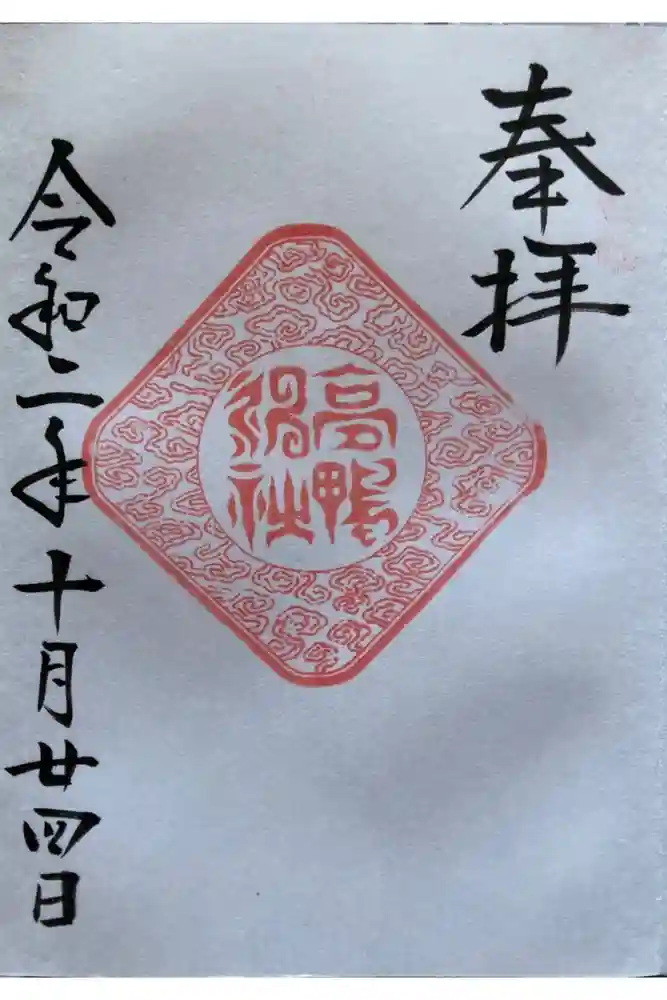 奉拝
高鴨
神社
令和二年十月廿四日